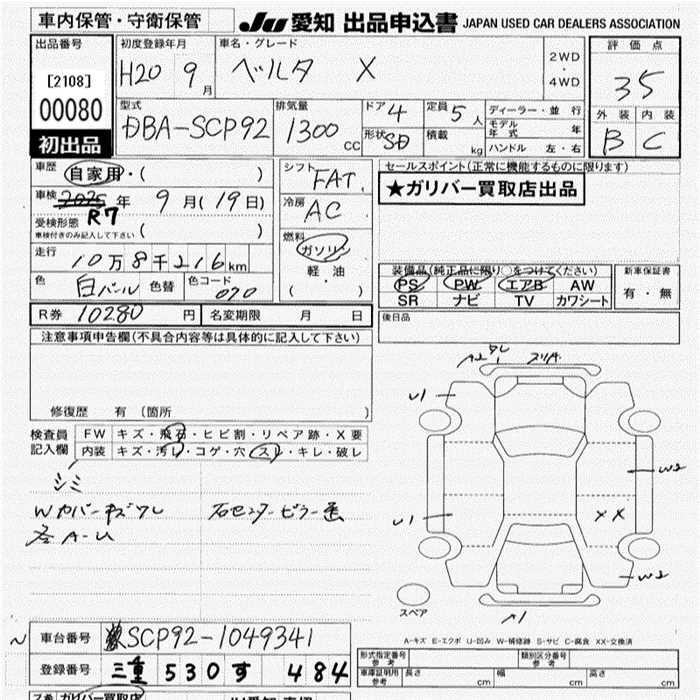 車内保管・守衛保管
JU 愛知 出品申込書 JAPAN USED CAR DEALERS ASSOCIATION
出品番号
[2108]
00080
初出品
初度登録年月
H20 9月
車名・グレード
ベルタ X
2WD
・
4WD
評価点
35
外装 内装
B C
型式
DBA-SCP92
排気量
1300 CC
ドア 4
形状 SD
定員 5 人
積載 kg
ディーラー・並行
モデル年式 年
ハンドル 左・右
車歴 自家用・( )
車検 2025 年 9月(19日)
R7
受検形態
車検付きのみ記入して下さい ( )
走行
10万8千216km
色 白パール 色替 色コード 070
シフト FAT
冷房 AC
燃料
ガソリン
軽油
( ・ )
セールスポイント(正常に機能するものに限ります)
★ガリバー買取店出品
装備品(純正品に限り○をつけてください)
PS PW エアB AW
SR ナビ TV カワシート
新車保証書
有・無
R券 10280 円 名変期限 月 日
後日品
注意事項申告欄(不具合内容等は具体的に記入して下さい)
修復歴 有 (箇所 )
検査員
記入欄
FW キズ・飛石・ヒビ割・リペア跡・X要
内装 キズ・汚レ・コゲ・穴・スレ・キレ・破レ
シミ
Wカバーキズワレ
各A-U
A2 ワレ
U1
U1
W2
XX
W2
スペア
A-キズ E-エクボ U-凹み W-補修跡 S-サビ C-腐食 XX-交換済
車台番号 SCP92-1049341
登録番号 三重 530 す 484
形式指定番号
参考
類別区分番号
参考
車庫証明用
参考
長さ cm 幅 cm 高さ cm
ガリバー買取店